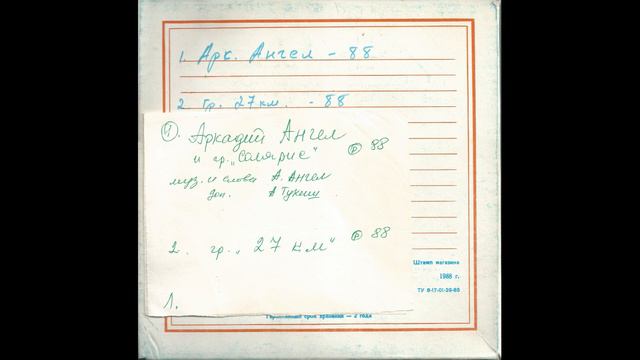 1. Арк. Ангел - 88
2. гр. 27 км. - 88
1. Аркадий Ангел
и гр. "Солярис" ℗ 88
муз. и слова А. Ангел
А Тукиш
2. гр. "27 км" ℗ 88
1.
Штамп магазина
1988 г.
ТУ 6-17-01-29-85
Гарантийный срок хранения — 2 года